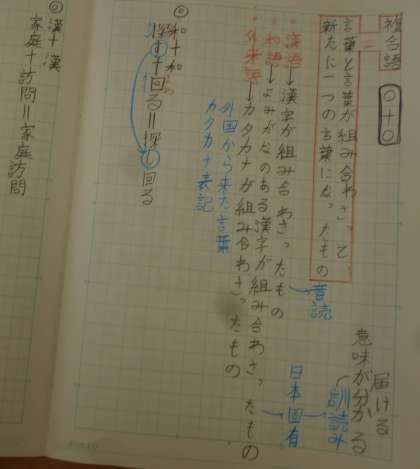 複合語 ○+○
=
言葉と言葉が組み合わさって、
新たに一つの言葉になったもの
・漢語→漢字が組み合わさったもの→音読
・和語→よみがなのある漢字が組み合わさったもの
・外来語→カタカナが組み合わさったもの
外国から来た言葉
カタカナ表記
訓読み
意味が分かる
届ける
日本固有
◎和+和
探す+回る=探し回る
◎漢+漢
家庭+訪問=家庭訪問